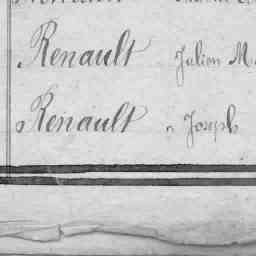 Renault Julien M
Renault " Joseph